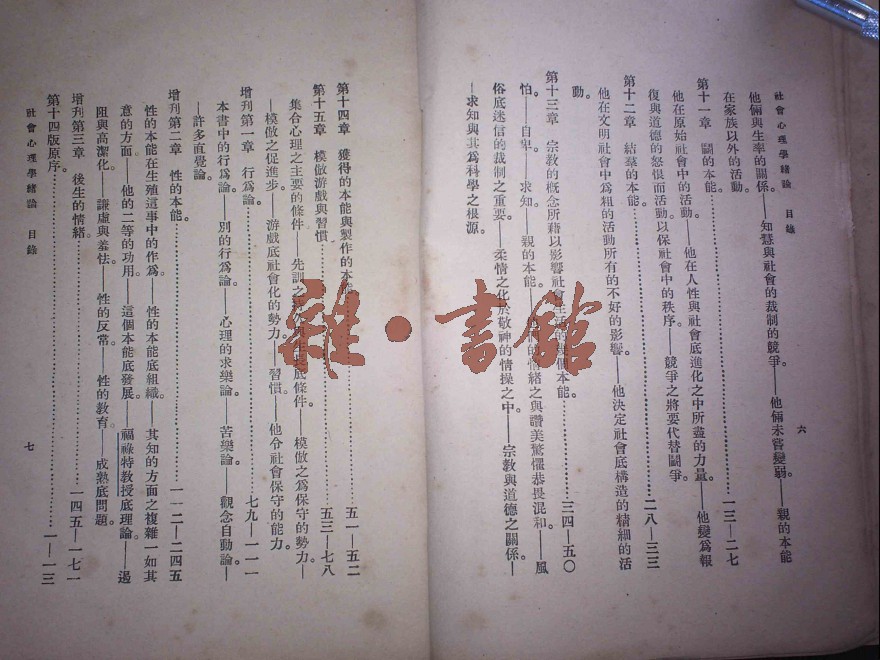 社會心理學緒論 目錄
六
他倆與生率的關係。——知慧與社會的裁制的競爭。——他倆未嘗變弱。——親的本能
在家族以外的活動。
第十一章 鬭的本能。 一三—二七
他在原始社會中的活動。——他在人性與社會底進化之中所盡的力量。——他變爲報
復與道德的怒恨而活動以保社會中的秩序。——競爭之將要代替鬭爭。
第十二章 結羣的本能。 二八—三三
他在文明社會中爲粗的活動所有的不好的影響。——他決定社會底構造的精細的活
動。
第十三章 宗教的概念所藉以影響社會生活的幾個本能。 三四—五〇
怕。——自卑。——求知。——親的本能。情緒之與讚美驚懼恭畏混和。——風
俗底迷信的裁制之重要。——柔情之化於敬神的情操之中。——宗教與道德之關係—
—求知與其爲科學之根源。
第十四章 獲得的本能與製作的本能 五一—五二
第十五章 模倣游戲與習慣 五三—七八
集合心理之主要的條件——先訓之底條件。——模倣之爲保守的勢力—
—模倣之促進步。——游戲底社會化的勢力。——習慣。——他令社會保守的能力。
增刊第一章 行爲論。 七九—一一一
本書中的行爲論。——別的行爲論。——心理的求樂論。——苦樂論。——觀念自動論。—
—許多直覺論。
增刊第二章 性的本能。 一一二—一四五
性的本能在生殖這事中的作爲。——性的本能底組織。——其知的方面之複雜一如其
意的方面。——他的二等的功用。——這個本能底發展。——福祿特教授底理論。——遏
阻與高潔化。——謙虛與羞怯。——性的反常。——性的教育。——成熟底問題。
增刊第三章 後生的情緒。 一四五—一七一
第十四版原序。 一—一三
社會心理學緒論 目錄
七
雜·書館